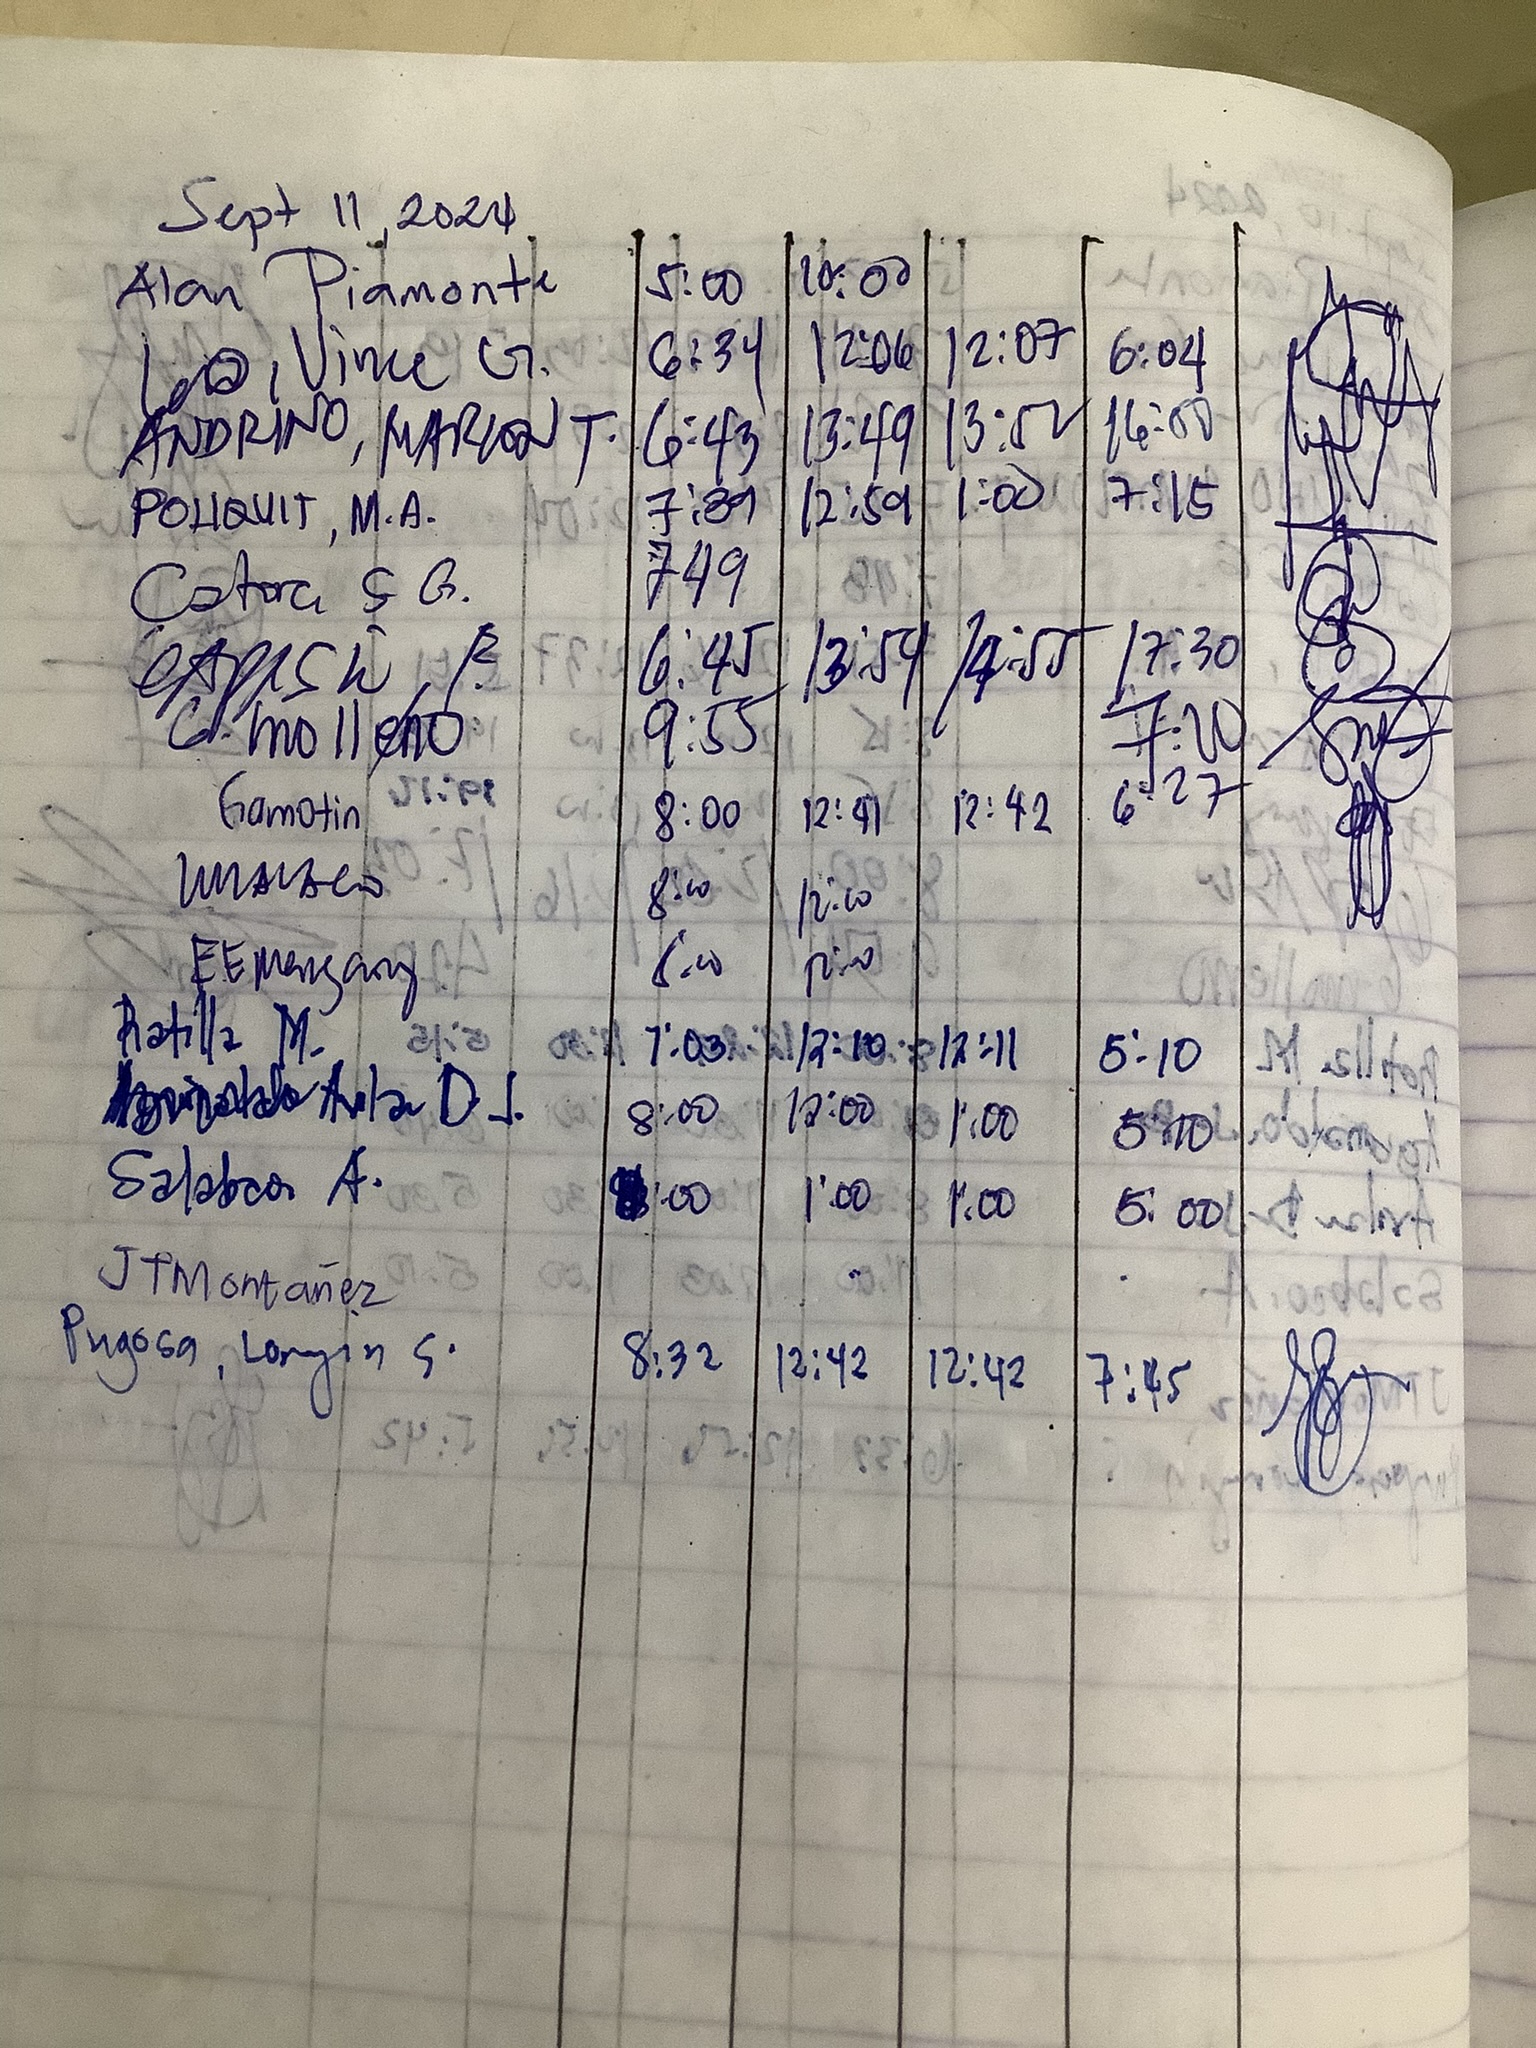 Sept 11, 2024
Alan Piamonte 5:00 10:00
Vince G. 6:34 12:06 12:07 6:04
ANDRINO, MARION T. 6:43 13:49 13:52 16:00
POLIQUIT, M.A. 7:39 12:59 1:00 7:15
Catora S G. 749
6:45 13:54 14:55 17:30
G. molleno 9:55 7:20
Gamotin 8:00 12:41 12:42 6:27
8:00 12:00
EEMangang 8:00 12:00
Ratilla M. 7:03 12:10 12:11 5:10
Avila D J. 8:00 12:00 1:00 5:10
Salabao A. 8:00 1:00 1:00 5:00
JTMontañez
Pugosa, Longin S. 8:32 12:42 12:42 7:45